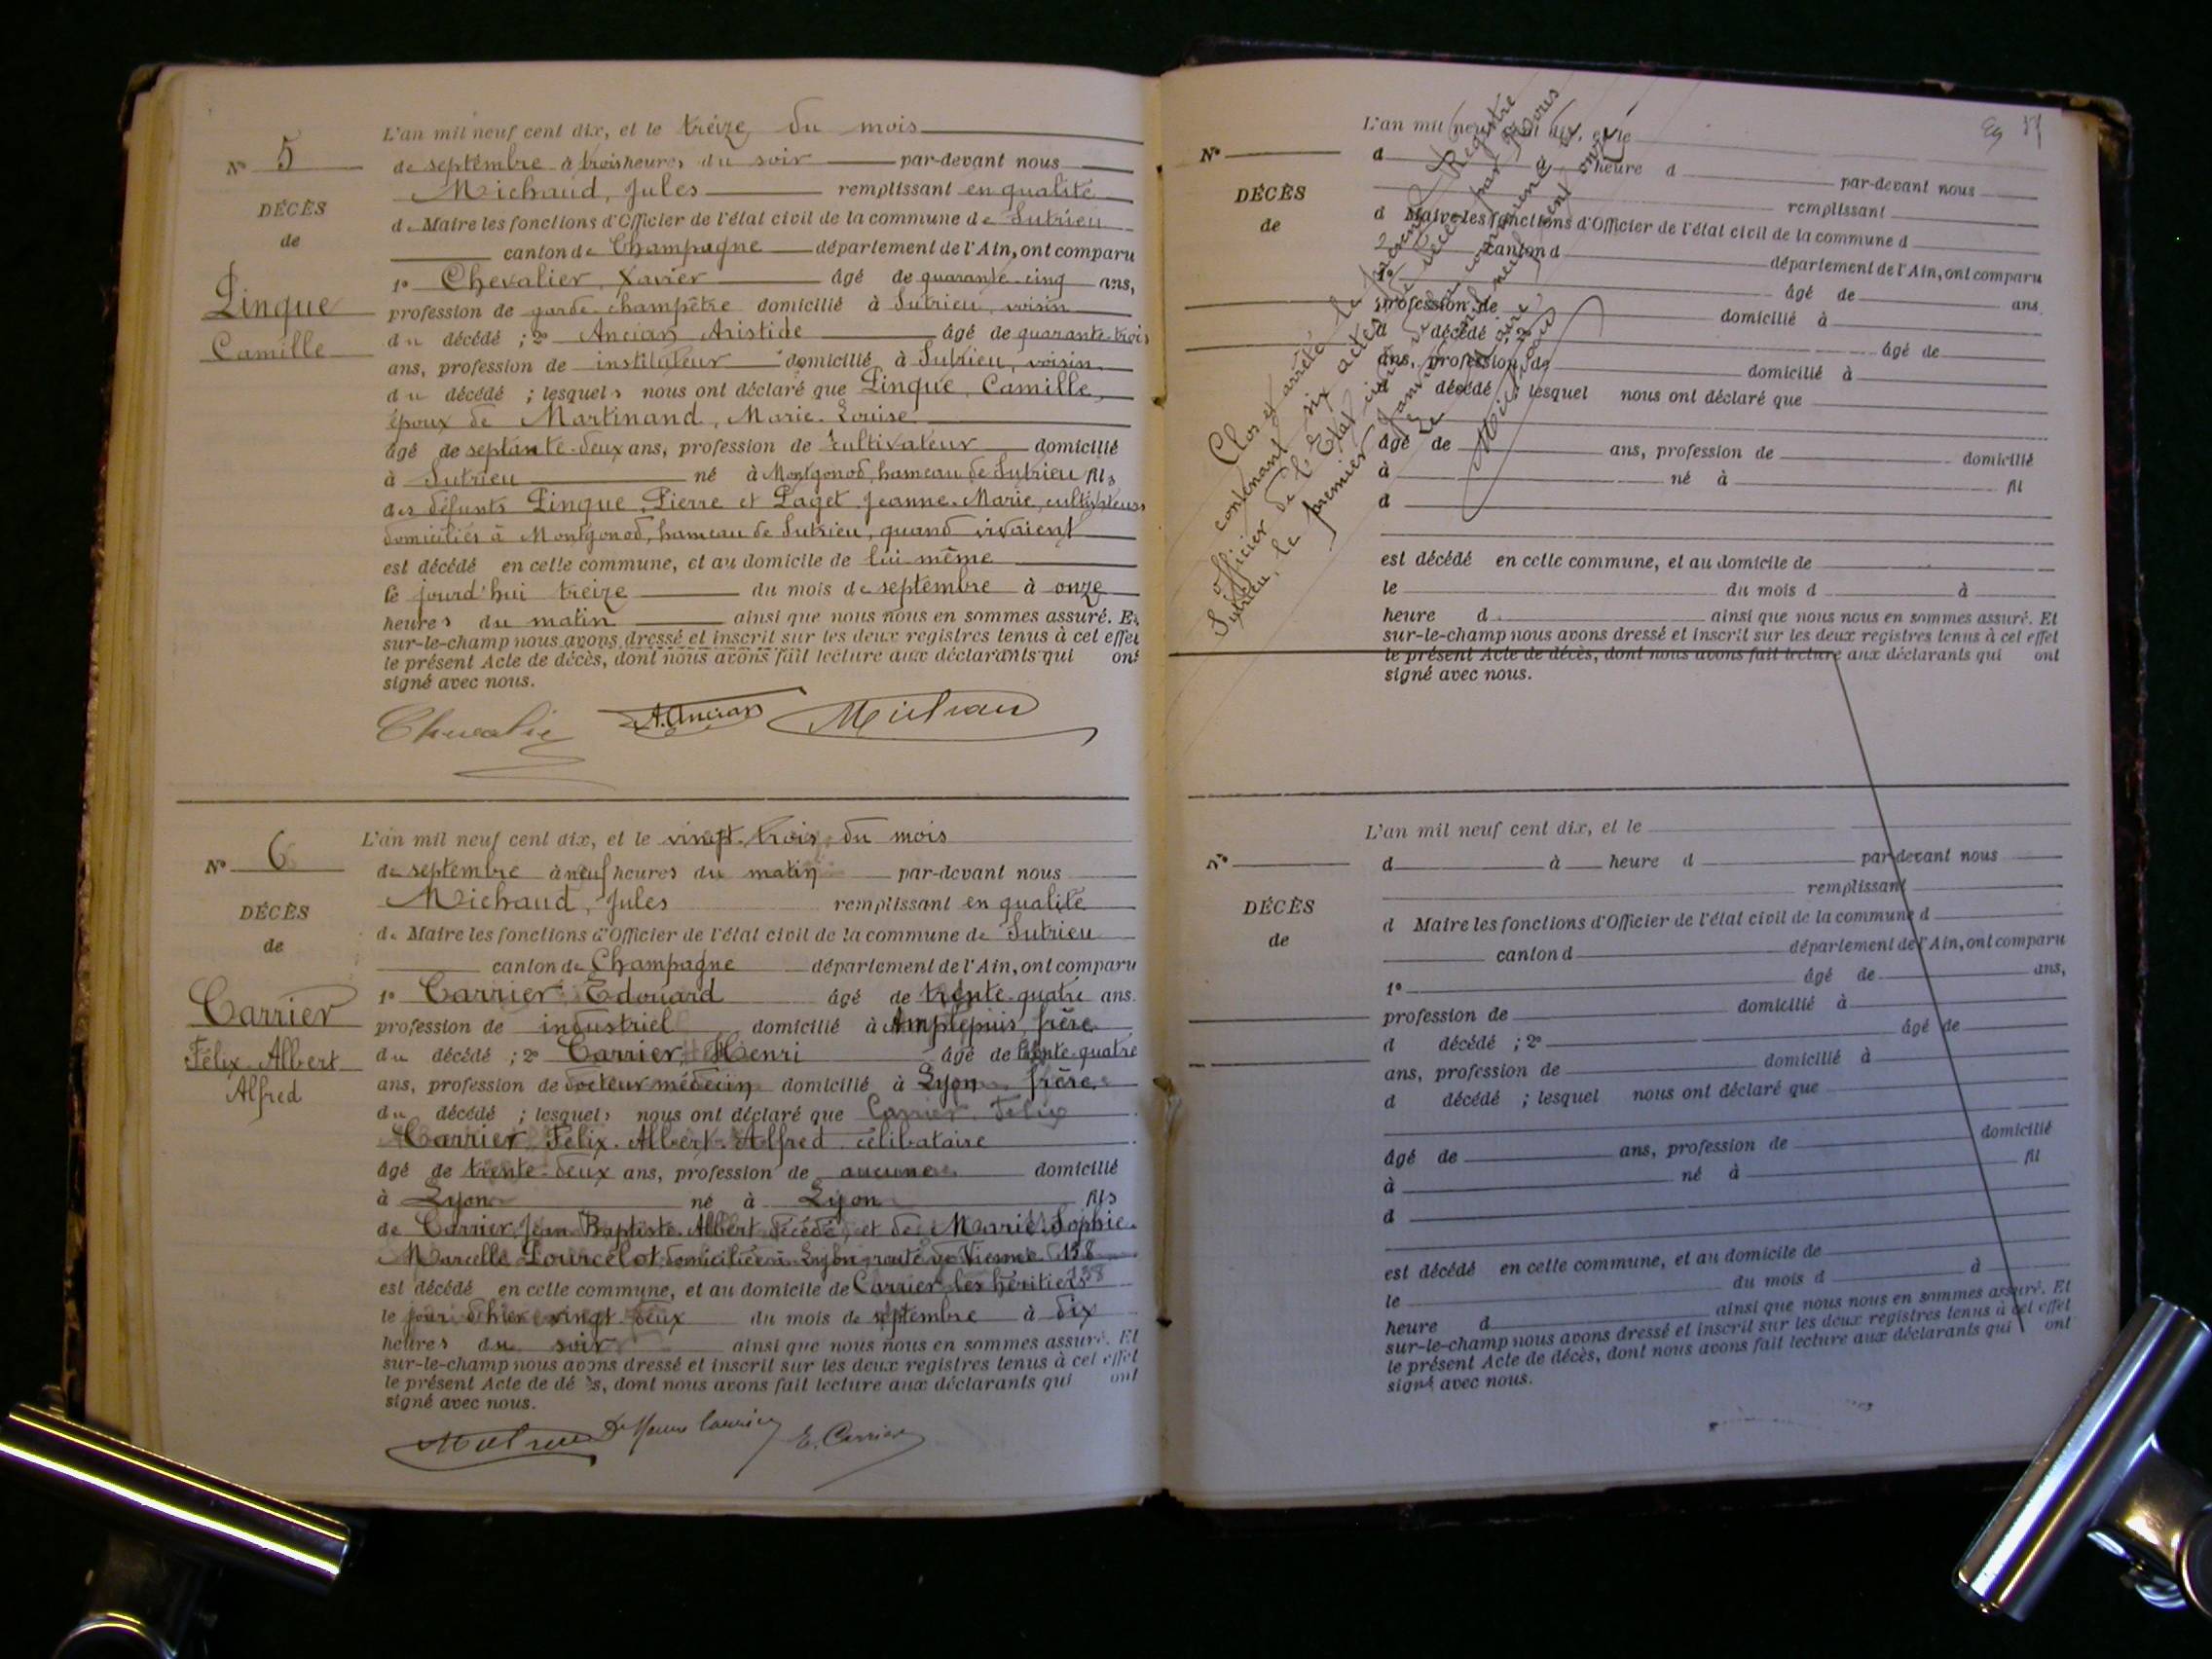 N° 5
DÉCÈS
de
Pingue
Camille
L'an mil neuf cent dix, et le treize du mois
de septembre à trois heures du soir par-devant nous
Michaud, Jules remplissant en qualité
de Maire les fonctions d'Officier de l'état civil de la commune de Sutrieu
canton de Champagne département de l'Ain, ont comparu
1° Chevalier Xavier âgé de quarante-cinq ans,
profession de garde-champêtre domicilié à Sutrieu, voisin
du décédé ; 2° Ancian Aristide âgé de quarante-trois
ans, profession de instituteur domicilié à Sutrieu, voisin
du décédé ; lesquels nous ont déclaré que Pingue, Camille,
époux de Martinand, Marie-Louise
âgé de septante-deux ans, profession de cultivateur domicilié
à Sutrieu né à Montgonod, hameau de Sutrieu fils
des défunts Pingue, Pierre et Paget Jeanne-Marie, cultivateurs
domiciliés à Montgonod, hameau de Sutrieu, quand vivaient
est décédé en cette commune, et au domicile de lui-même
le jourd'hui treize du mois de septembre à onze
heures du matin ainsi que nous nous en sommes assuré. Et
sur-le-champ nous avons dressé et inscrit sur les deux registres tenus à cet effet
le présent Acte de décès, dont nous avons fait lecture aux déclarants qui ont
signé avec nous.
Chevalier A. Ancian Michaud
N° 6
DÉCÈS
de
Carrier
Félix-Albert
Alfred
L'an mil neuf cent dix, et le vingt-trois du mois
de septembre à neuf heures du matin par-devant nous
Michaud, Jules remplissant en qualité
de Maire les fonctions d'Officier de l'état civil de la commune de Sutrieu
canton de Champagne département de l'Ain, ont comparu
1° Carrier Edouard âgé de trente-quatre ans.
profession de industriel domicilié à Amplepuis, frère
du décédé ; 2° Carrier, Henri âgé de trente-quatre
ans, profession de docteur médecin domicilié à Lyon frère
du décédé ; lesquels nous ont déclaré que Carrier Félix
Carrier, Félix-Albert-Alfred célibataire
âgé de trente-deux ans, profession de aucune domicilié
à Lyon né à Lyon fils
de Carrier, Jean-Baptiste-Albert décédé, et de Marie-Sophie-
Marcelle Pourcelot domiciliée à Lyon route de Vienne 138
est décédé en cette commune, et au domicile de Carrier les héritiers 138
le jour d'hier vingt-deux du mois de septembre à dix
heures du soir ainsi que nous nous en sommes assuré. Et
sur-le-champ nous avons dressé et inscrit sur les deux registres tenus à cet effet
le présent Acte de décès, dont nous avons fait lecture aux déclarants qui ont
signé avec nous.
Michaud E. Carrier
N°
DÉCÈS
de
L'an mil neuf cent dix, et le
d à heure d par-devant nous
remplissant
d Maire les fonctions d'Officier de l'état civil de la commune d
canton d département de l'Ain, ont comparu
1° âgé de ans
profession de domicilié à
d décédé ; 2° âgé de
ans, profession de domicilié à
d décédé ; lesquel nous ont déclaré que
âgé de ans, profession de domicilié
à né à fil
d
est décédé en cette commune, et au domicile de
le du mois d à
heure d ainsi que nous nous en sommes assuré. Et
sur-le-champ nous avons dressé et inscrit sur les deux registres tenus à cet effet
le présent Acte de décès, dont nous avons fait lecture aux déclarants qui ont
signé avec nous.
Clos et arrêté le présent Registre
contenant six actes de décès par Nous
officier de l'Etat civil de la commune de
Sutrieu, le premier janvier mil neuf cent onze
Le Maire,
Michaud
N°
DÉCÈS
de
L'an mil neuf cent dix, et le
d à heure d par-devant nous
remplissant
d Maire les fonctions d'Officier de l'état civil de la commune d
canton d département de l'Ain, ont comparu
1° âgé de ans,
profession de domicilié à
d décédé ; 2° âgé de
ans, profession de domicilié à
d décédé ; lesquel nous ont déclaré que
âgé de ans, profession de domicilié
à né à fil
d
est décédé en cette commune, et au domicile de
le du mois d à
heure d ainsi que nous nous en sommes assuré. Et
sur-le-champ nous avons dressé et inscrit sur les deux registres tenus à cet effet
le présent Acte de décès, dont nous avons fait lecture aux déclarants qui ont
signé avec nous.